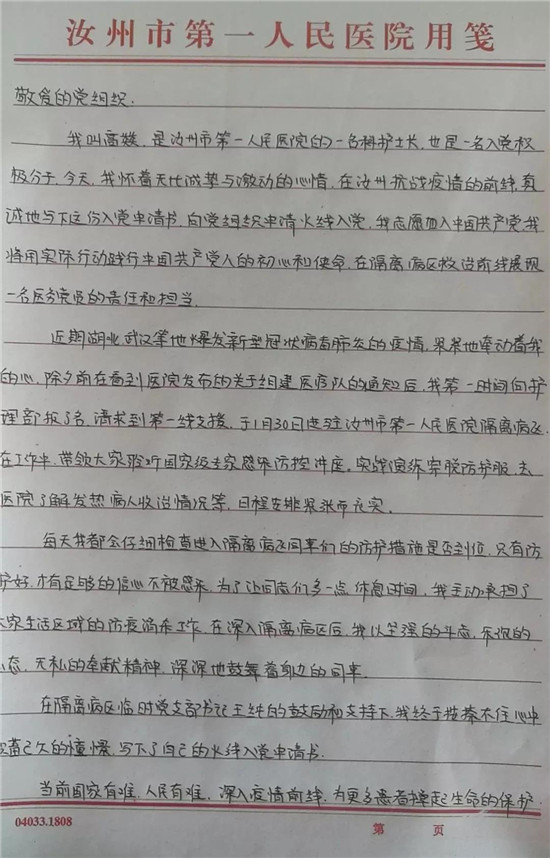 汝州市第一人民医院用笺
敬爱的党组织.
我叫高媛, 是汝州市第一人民医院的一名科护士长, 也是一名入党积
极分子, 今天, 我怀着无比诚挚与激动的心情, 在汝州抗战疫情的前线, 真
诚地写下这份入党申请书, 向党组织申请火线入党, 我志愿加入中国共产党, 我
将用实际行动践行中国共产党人的初心和使命, 在隔离病区救治前线展现
一名医务党员的责任和担当.
近期湖北, 武汉等地爆发新型冠状病毒肺炎的疫情, 紧紧地牵动着我
的心, 除夕前在看到医院发布的关于组建医疗队的通知后, 我第一时间向护
理部报了名, 请求到第一线支援, 于1月30日进驻汝州市第一人民医院隔离病区,
在工作中, 带领大家聆听国家级专家感染防控讲座, 实战演练穿脱防护服, 去
医院了解发热病人收治情况等, 日程安排紧张而充实.
每天我都会仔细检查进入隔离病区同事们的防护措施是否到位, 只有防
护好, 才有足够的信心不被感染, 为了让同志们多一点休息时间, 我主动承担了
大家生活区域的防疫消杀工作, 在深入隔离病区后, 我以坚强的斗志, 乐观的
心态, 无私的奉献精神, 深深地鼓舞着身边的同事.
在隔离病区临时党支部书记王纯的鼓励和支持下, 我终于按捺不住心中
蓄已久的憧憬, 写下了自己的火线入党申请书.
当前国家有难, 人民有难, 深入疫情前线, 为更多患者撑起生命的保护
04033.1808
第 页